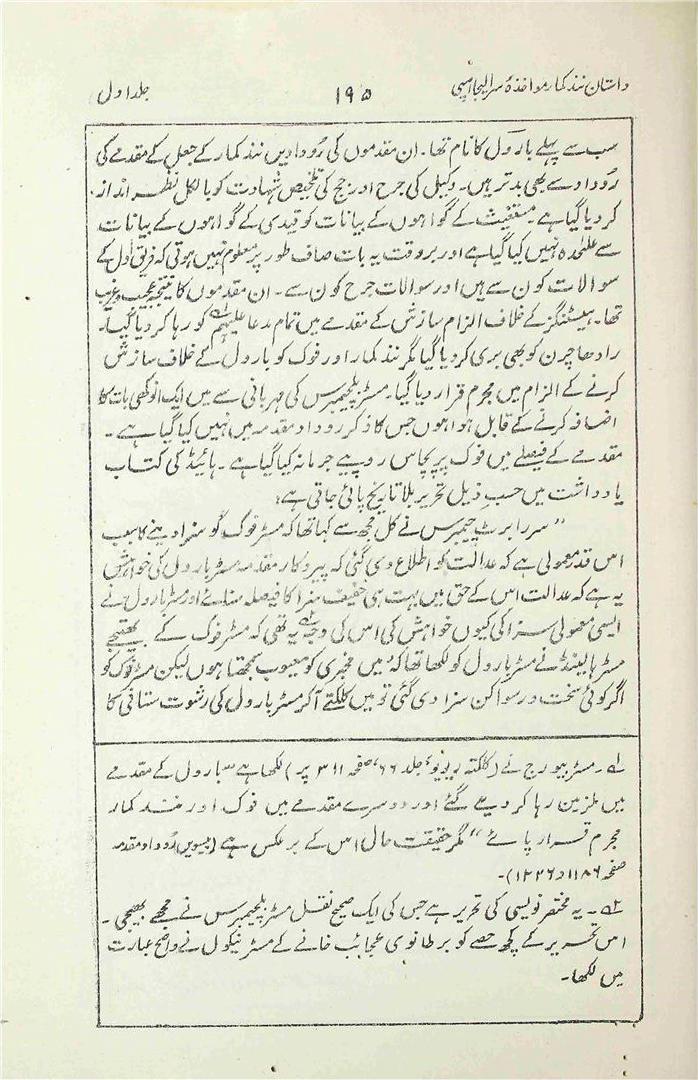 داستان نند کمار مواخذۂ سر الیجا امپی ۱۹۵ جلد اول
سب سے پہلے بارول کا نام تھا۔ ان مقدموں کی رُودادیں نند کمار کے جعل کے مقدمے کی
رُوداد سے بھی بدتر ہیں۔ وکیل کی جرح اور جج کی تلخیص شہادت کو بالکل نظر انداز
کر دیا گیا ہے۔ مستغیث کے گواہوں کے بیانات کو قیدی کے گواہوں کے بیانات
سے علٰحدہ نہیں کیا گیا ہے اور ہر وقت یہ بات صاف طور پر معلوم نہیں ہوتی کہ فریق اول کے
سوالات کون سے ہیں اور سوالات جرح کون سے۔ ان مقدموں کا نتیجہ عجیب و غریب
تھا۔ ہیسٹنگز کے خلاف الزام سازش کے مقدمے میں تمام مدعا علیہم ؎۱ کو رہا کر دیا گیا۔
رادھا چرن کو بھی بری کر دیا گیا مگر نند کمار اور فوک کو بارول کے خلاف سازش
کرنے کے الزام میں مجرم قرار دیا گیا۔ مسٹر بلچیمبرس کی مہربانی سے میں ایک انوکھی بات کا
اضافہ کرنے کے قابل ہوا ہوں جس کا ذکر روداد مقدمہ میں نہیں کیا گیا ہے۔
مقدمے کے فیصلے میں فوک پر پچاس روپیے جرمانہ کیا گیا ہے۔ ہائیڈ کی کتاب
یادداشت میں حسبِ ذیل تحریر بلا تاریخ پائی جاتی ہے:
”سر رابرٹ چیمبرس نے کل مجھ سے کہا تھا کہ مسٹر فوک کو سزا دینے کا سبب
اس قدر معمولی ہے کہ عدالت کو اطلاع دی گئی کہ پیروکار مقدمہ مسٹر بارول کی خواہش
یہ ہے کہ عدالت اس کے حق میں بہت ہی خفیف سزا کا فیصلہ سنائے اور مسٹر بارول نے
ایسی معمولی سزا کی کیوں خواہش کی اس کی وجہ ؎۲ یہ تھی کہ مسٹر فوک کے بھتیجے
مسٹر ہالینڈ نے مسٹر بارول کو لکھا تھا کہ ’میں مخبری کو معیوب سمجھتا ہوں لیکن مسٹر فوک کو
اگر کوئی سخت و رسوا کن سزا دی گئی تو میں کلکتے آ کر مسٹر بارول کی رشوت ستانی کا
؎۱۔ مسٹر بیورج نے (کلکتہ ریویو، جلد ۶۶، صفحہ ۳۱۱ پر) لکھا ہے ”بارول کے مقدمے
میں ملزمین رہا کر دیے گئے اور دوسرے مقدمے میں فوک اور نند کمار
مجرم قرار پائے“ مگر حقیقت حال اس کے برعکس ہے (بیسویں رُوداد مقدمہ
صفحہ ۱۱۸۶ و ۱۲۲۶)۔
؎۲۔ یہ مختصر نویسی کی تحریر ہے جس کی ایک صحیح نقل مسٹر بلچیمبرس نے مجھے بھیجی۔
اس تحریر کے کچھ حصے کو برطانوی عجائب خانے کے مسٹر نیکول نے واضح عبارت
میں لکھا۔